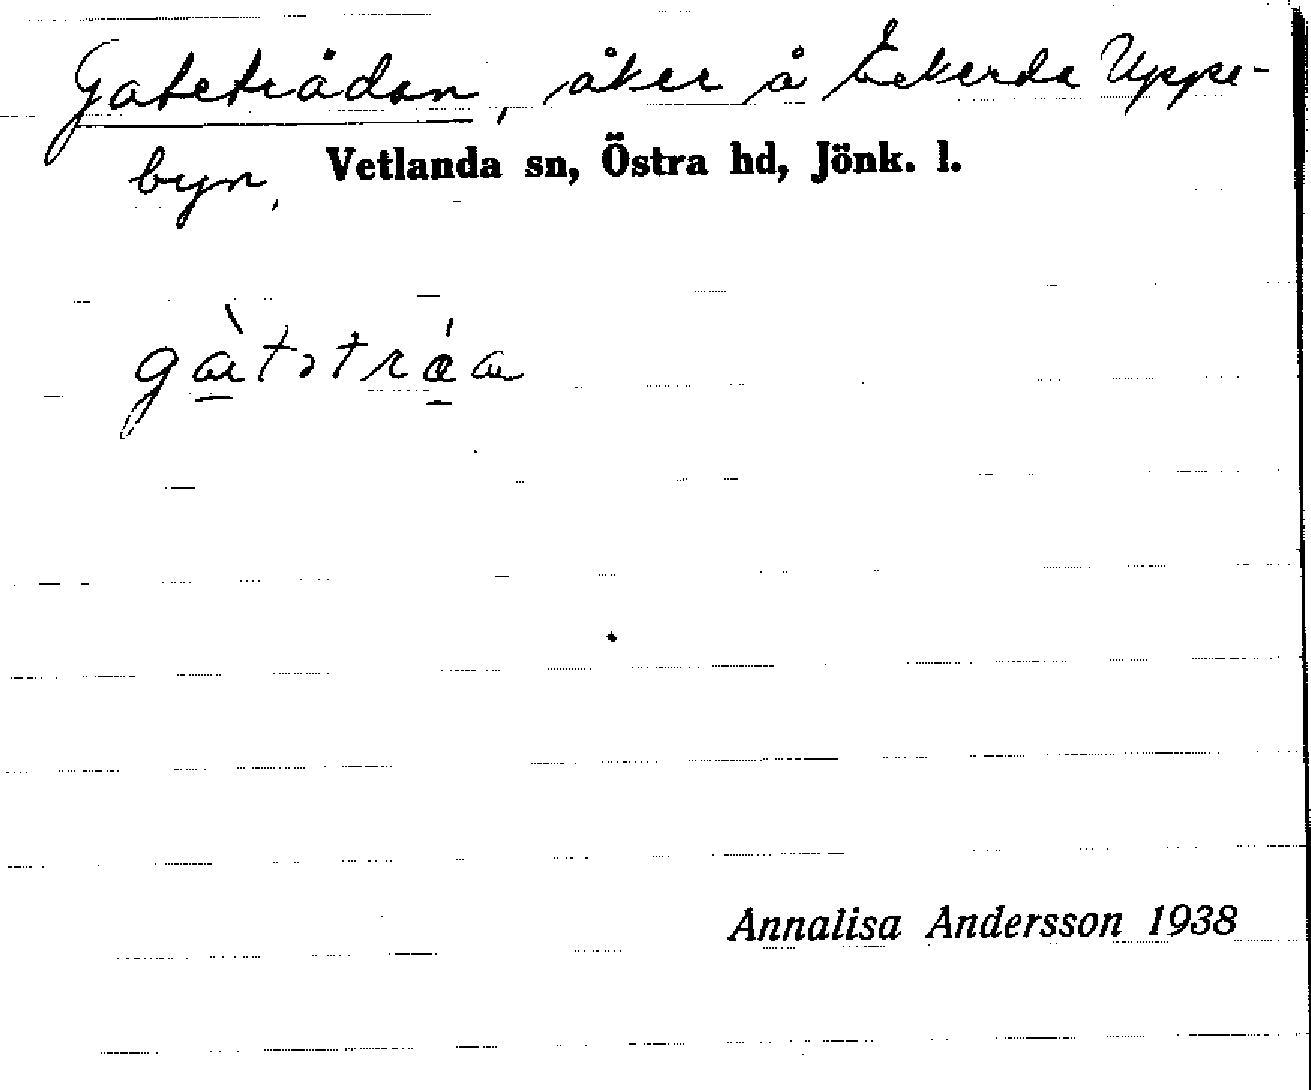 Gateträdan, åker å Ekerda Uppe-
byn, Vetlanda sn, Östra hd, Jönk. l.
Annalisa Andersson 1938